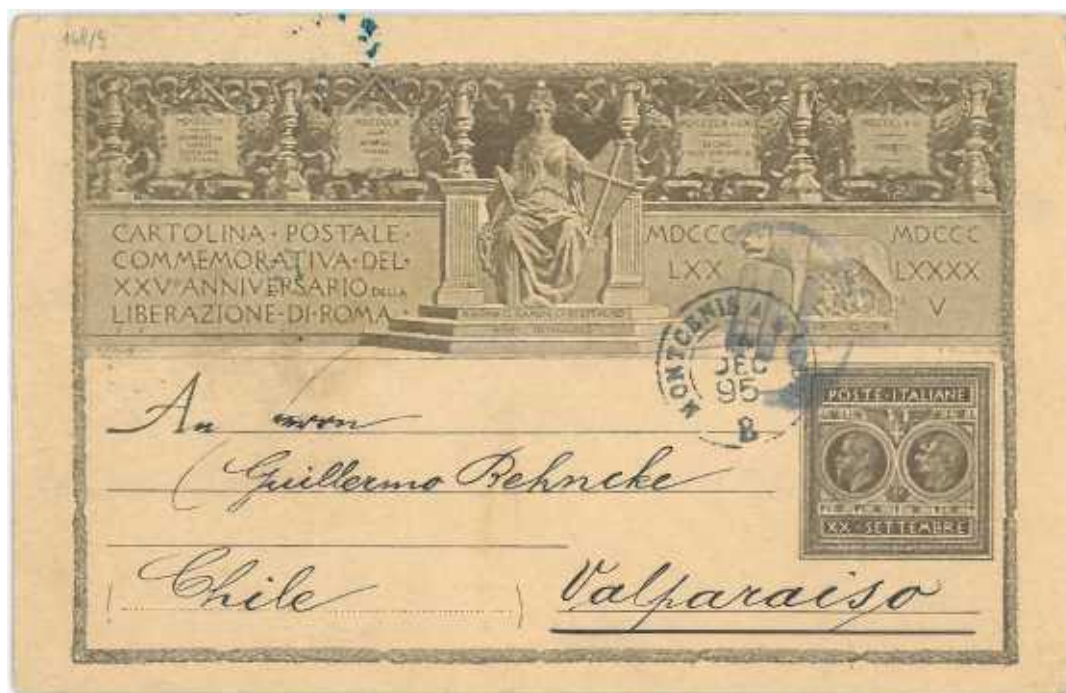 CARTOLINA · POSTALE ·
COMMEMORATIVA · DEL ·
XXVº ANNIVERSARIO DELLA
LIBERAZIONE · DI · ROMA ·
MDCCC
LXX
MDCCC
LXXXX
V
MONTCENIS A
DEC
95
B
POSTE · ITALIANE
XX · SETTEMBRE
An
Guillermo Behncke
Chile
Valparaiso